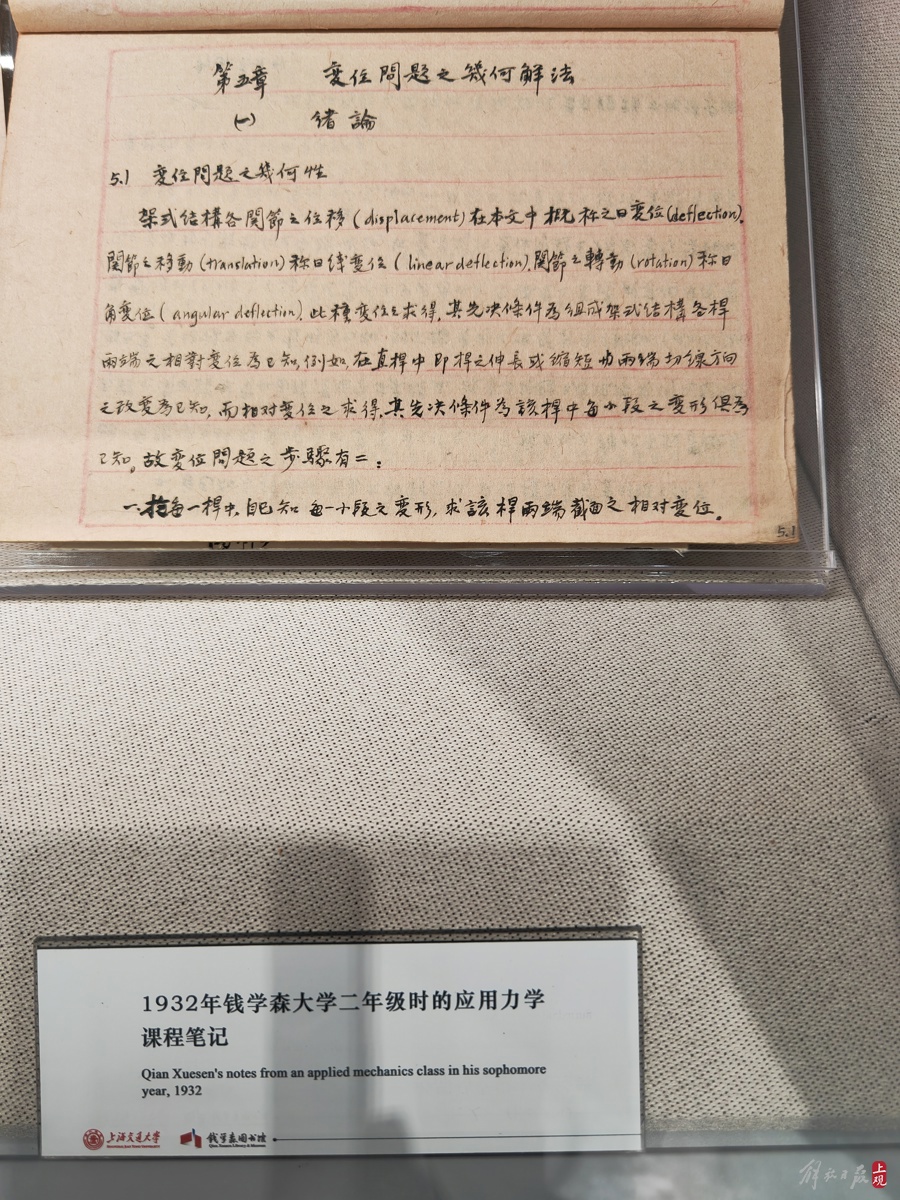 第五章 変位問題之幾何解法
(一) 緒論
5.1 変位問題之幾何性
架式结構各関節之位移(displacement)在本文中概称之曰変位(deflection).
関節之移動(translation)称曰线変位(linear deflection),関節之轉動(rotation)称曰
角変位(angular deflection).此種変位之求得,其先决條件為组成架式结構各桿
兩端之相對変位為已知,例如,在直桿中即桿之伸長或縮短也兩端切線方向
之改変為已知,而相对変位之求得,其先决條件為該桿中每小段之変形俱為
已知。故変位問題之步驟有二:
一.每一桿中,自已知每一小段之変形,求該桿兩端截面之相对変位。
5.1
1932年钱学森大学二年级时的应用力学
课程笔记
Qian Xuesen's notes from an applied mechanics class in his sophomore
year, 1932
上海交通大学 钱学森图书馆
解放日报 上观